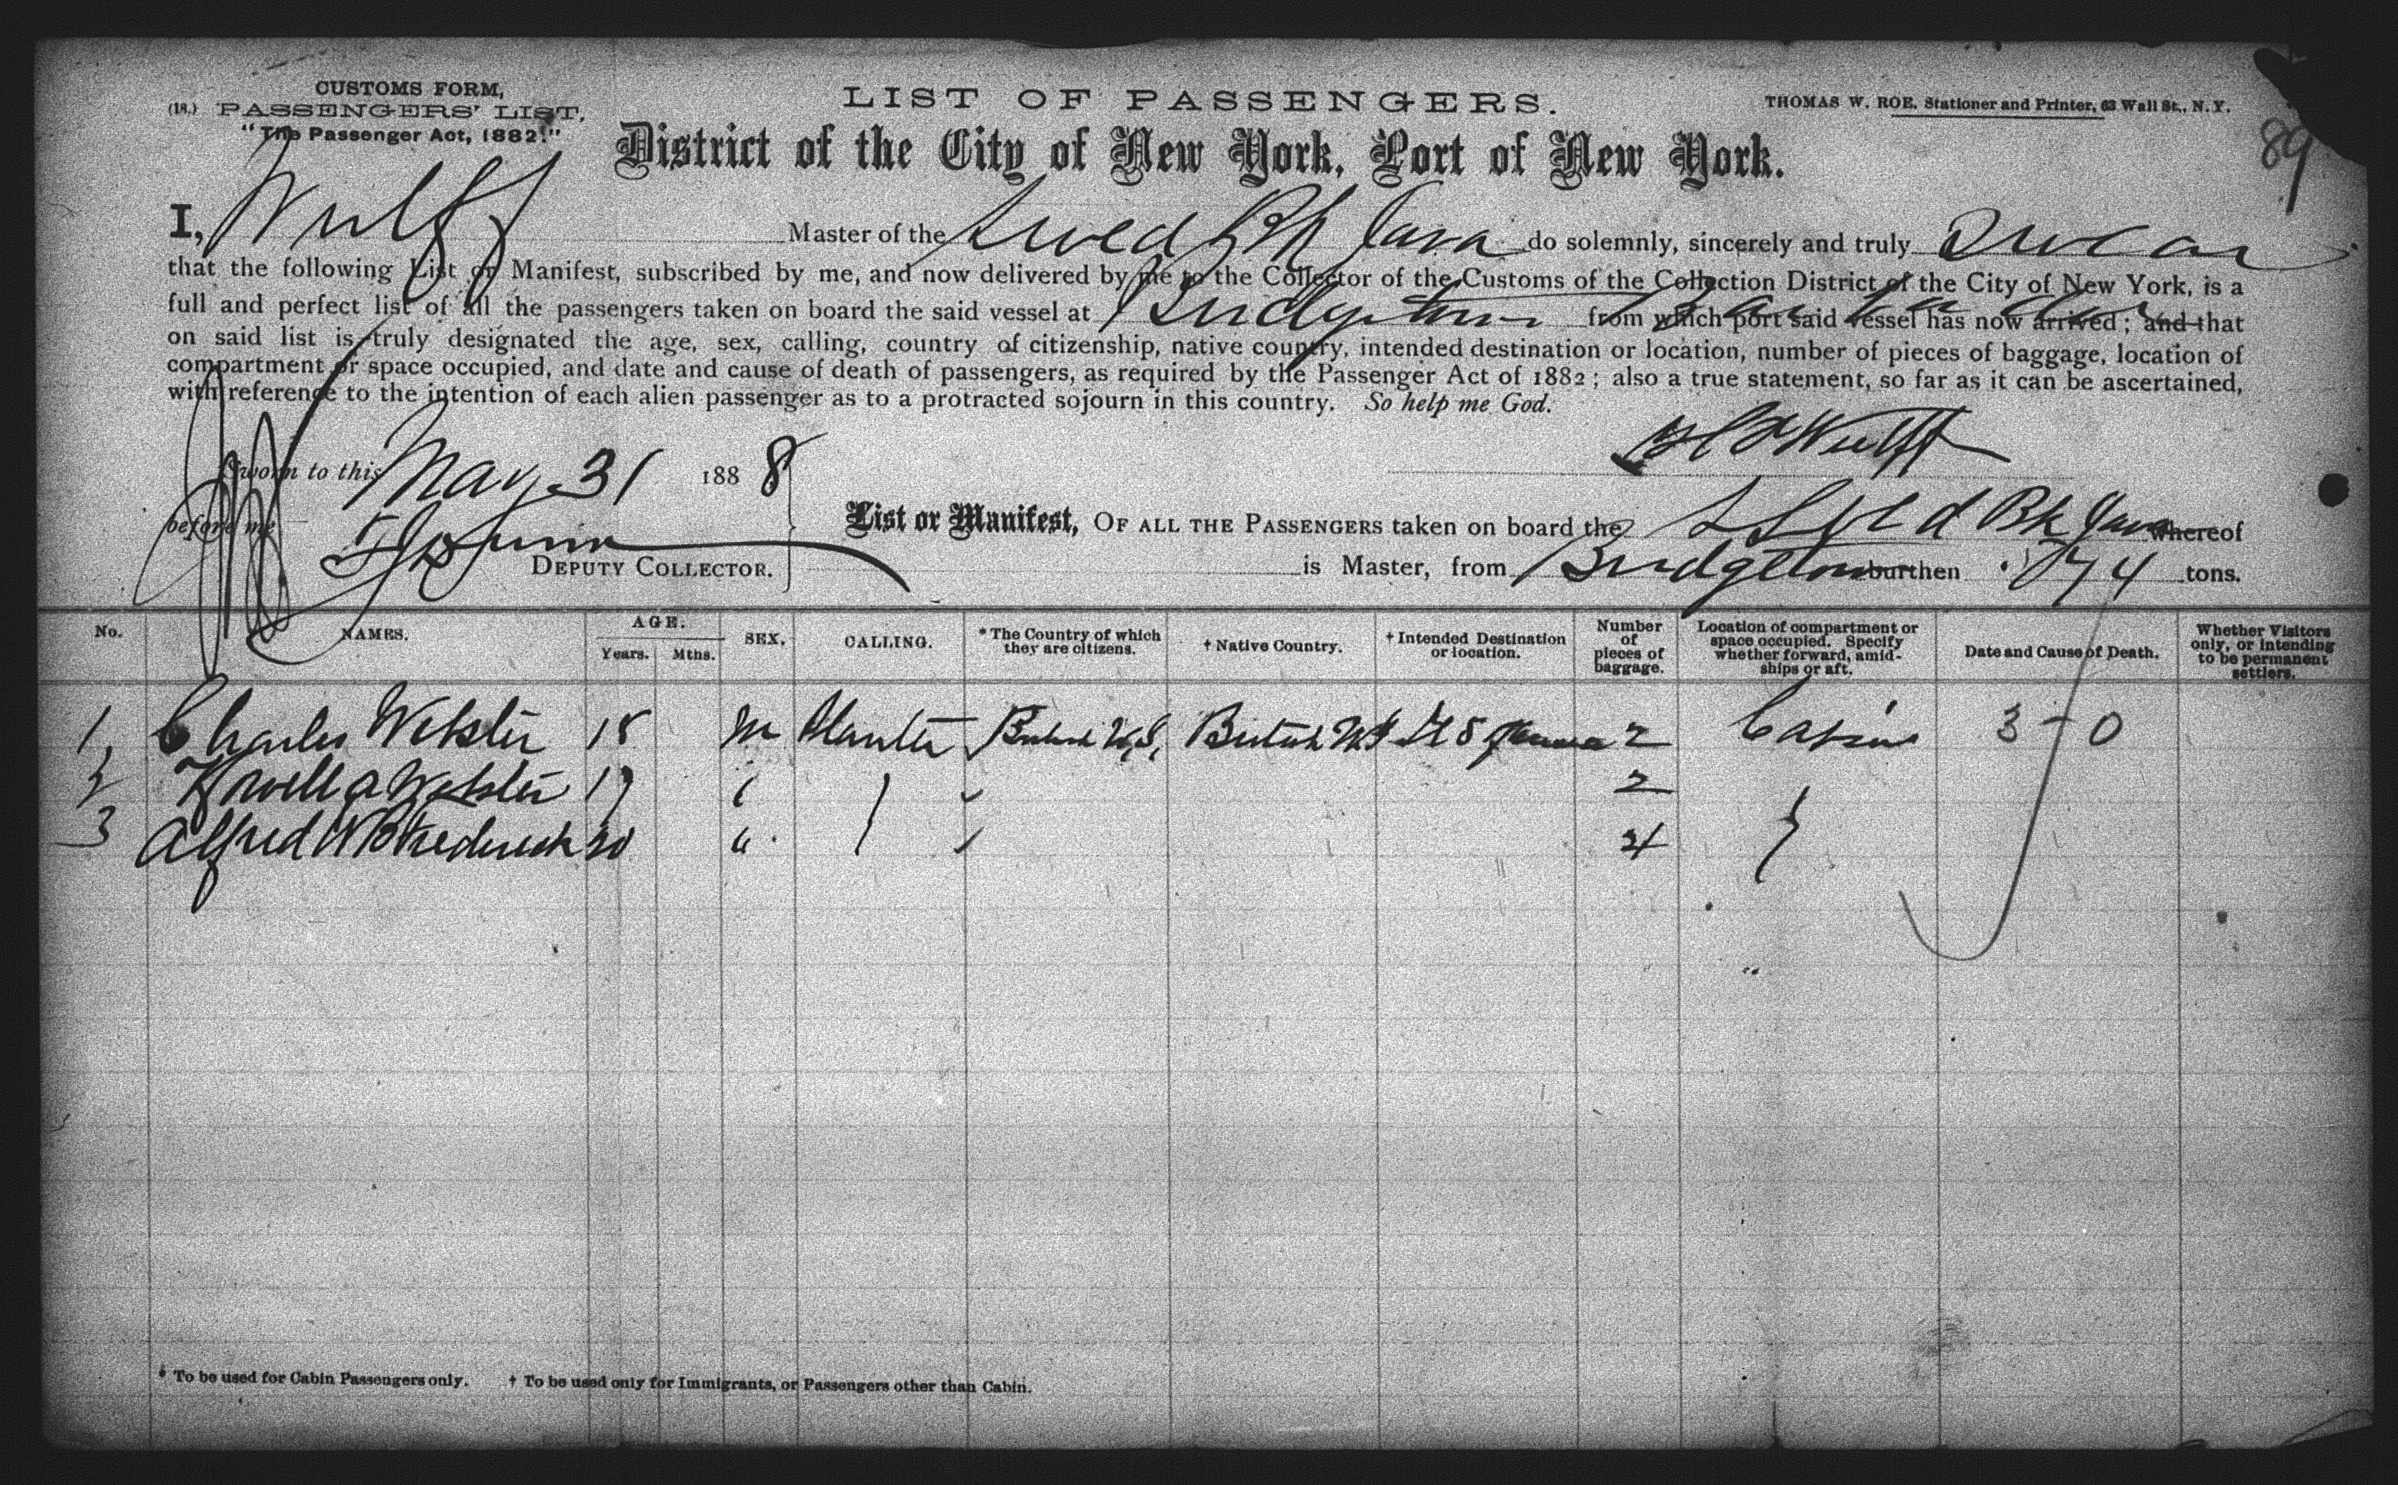 CUSTOMS FORM,
(18.) PASSENGERS' LIST,
"The Passenger Act, 1882."
LIST OF PASSENGERS.
THOMAS W. ROE, Stationer and Printer, 63 Wall St., N.Y.
89
District of the City of New York, Port of New York.
I, Wulff Master of the Swed Bk Java do solemnly, sincerely and truly Swear
that the following List or Manifest, subscribed by me, and now delivered by me to the Collector of the Customs of the Collection District of the City of New York, is a
full and perfect list of all the passengers taken on board the said vessel at Bridgetown Barbados from which port said vessel has now arrived; and that
on said list is truly designated the age, sex, calling, country of citizenship, native country, intended destination or location, number of pieces of baggage, location of
compartment or space occupied, and date and cause of death of passengers, as required by the Passenger Act of 1882; also a true statement, so far as it can be ascertained,
with reference to the intention of each alien passenger as to a protracted sojourn in this country. So help me God.
Wulff
Sworn to this May 31 1888
before me
DEPUTY COLLECTOR.
List or Manifest, OF ALL THE PASSENGERS taken on board the Swed Bk Java whereof
is Master, from Bridgetown burthen 74 tons.
No. NAMES. AGE. Years. Mths. SEX. CALLING. * The Country of which they are citizens. † Native Country. † Intended Destination or location. Number of pieces of baggage. Location of compartment or space occupied. Specify whether forward, amidships or aft. Date and Cause of Death. Whether Visitors only, or intending to be permanent settlers.
1, Charles Webster 18 M Planter British W.I. British W I U S 2 Cabin 3-0
2 Webster 19 2
3 Alfred Frederick 20 " 4
* To be used for Cabin Passengers only. † To be used only for Immigrants, or Passengers other than Cabin.